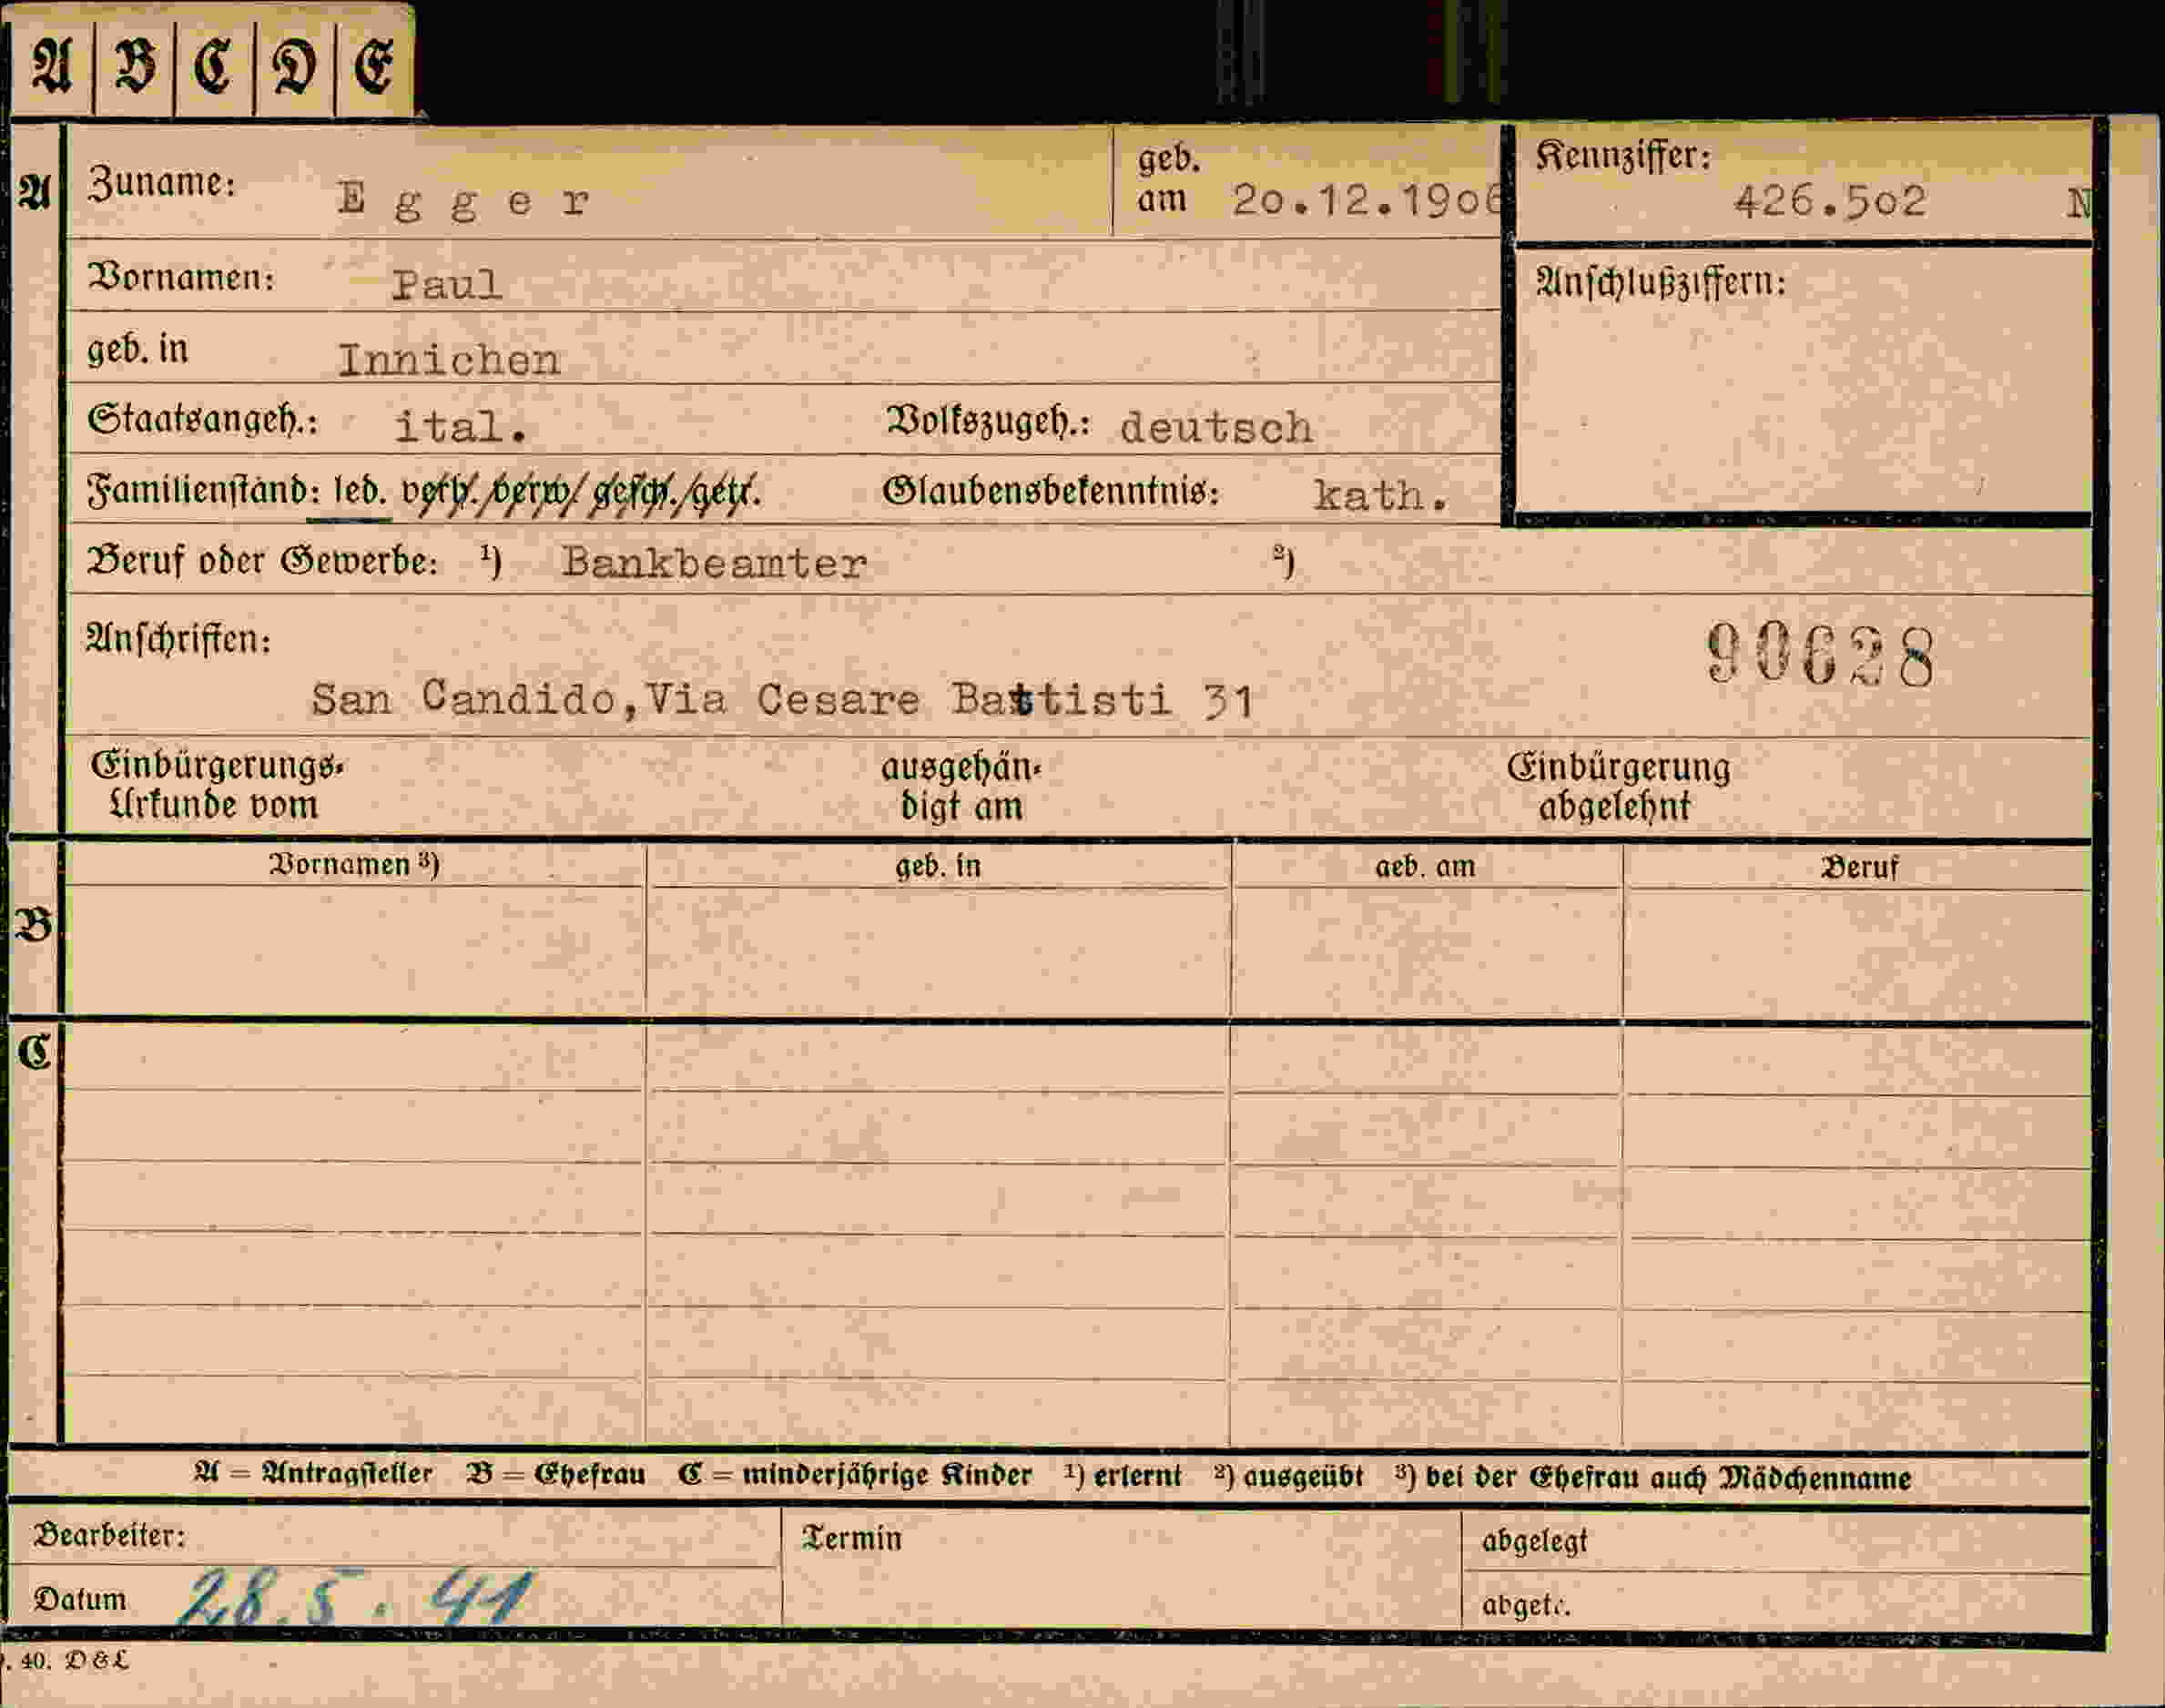 A B C D E
A Zuname: Egger geb. am 20.12.1906 Kennziffer: 426.502 N
Vornamen: Paul Anschlußziffern:
geb. in Innichen
Staatsangeh.: ital. Volkszugeh.: deutsch
Familienstand: led. verh./verw/gesch./getr. Glaubensbekenntnis: kath.
Beruf oder Gewerbe: ¹) Bankbeamter ²)
Anschriften: 90628
San Candido,Via Cesare Battisti 31
Einbürgerungs- ausgehän- Einbürgerung
Urkunde vom digt am abgelehnt
Vornamen ³) geb. in geb. am Beruf
B
C
A = Antragsteller B = Ehefrau C = minderjährige Kinder ¹) erlernt ²) ausgeübt ³) bei der Ehefrau auch Mädchenname
Bearbeiter: Termin abgelegt
Datum 28.5.41 abgetr.
. 40. D & L